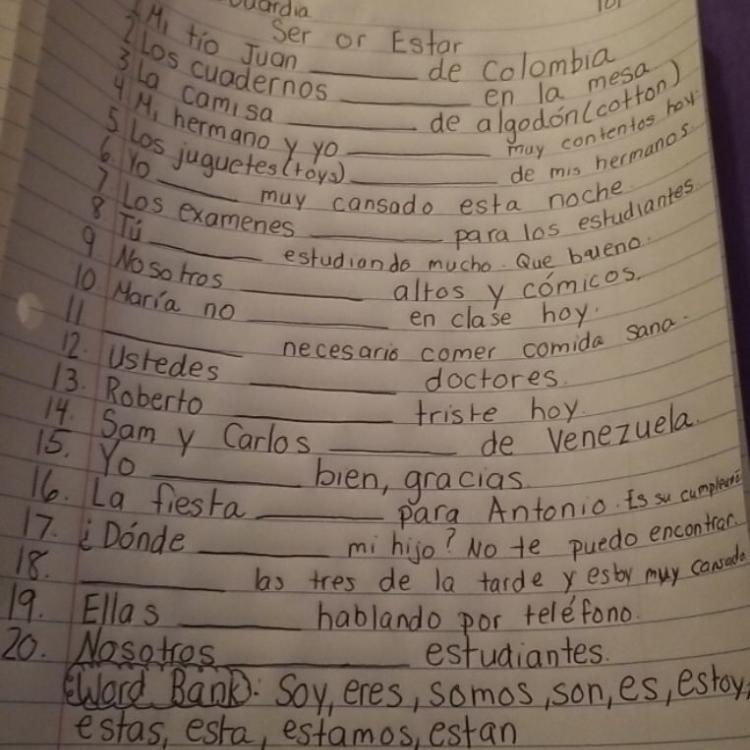 Guardia 101
Ser or Estar
1 Mi tío Juan ________ de Colombia
2 Los cuadernos ________ en la mesa
3 La camisa ________ de algodón (cotton)
4 Mi hermano y yo ________ muy contentos hoy.
5 Los juguetes (toys) ________ de mis hermanos.
6. Yo ________ muy cansado esta noche
7 Los examenes ________ para los estudiantes
8 Tú ________ estudiando mucho. Que bueno.
9 Nosotros ________ altos y cómicos.
10 María no ________ en clase hoy.
11 ________ necesario comer comida sana.
12. Ustedes ________ doctores.
13. Roberto ________ triste hoy.
14. Sam y Carlos ________ de Venezuela.
15. Yo ________ bien, gracias.
16. La fiesta ________ para Antonio. Es su
17. ¿Dónde ________ mi hijo? No te puedo encontrar.
18. ________ las tres de la tarde y estoy muy cansada
19. Ellas ________ hablando por teléfono.
20. Nosotros ________ estudiantes.
(Word Bank): Soy, eres, somos, son, es, estoy,
estas, esta, estamos, estan